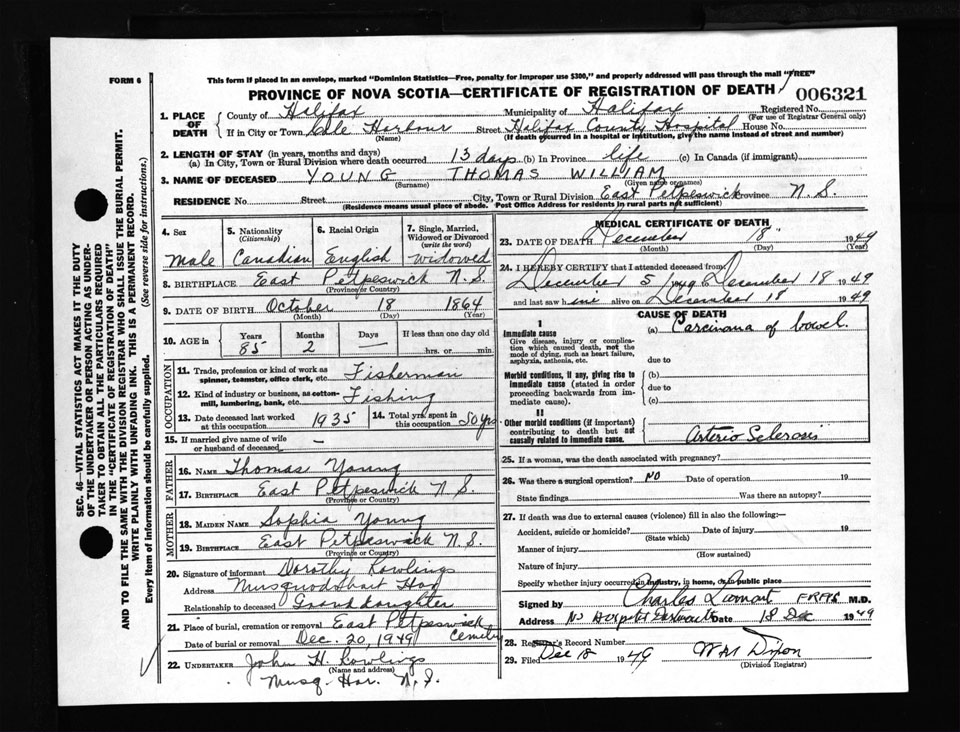 FORM 6
This form if placed in an envelope, marked "Dominion Statistics—Free, penalty for improper use $300," and properly addressed will pass through the mail "FREE"
PROVINCE OF NOVA SCOTIA—CERTIFICATE OF REGISTRATION OF DEATH
006321
1. PLACE OF DEATH
County of Halifax Municipality of Halifax Registered No.
(For use of Registrar General only)
If in City or Town Cole Harbour Street Halifax County Hospital House No.
(Name) (If death occurred in a hospital or institution, give the name instead of street and number)
2. LENGTH OF STAY (in years, months and days)
(a) In City, Town or Rural Division where death occurred 13 days (b) In Province life (c) In Canada (if immigrant)
3. NAME OF DECEASED YOUNG THOMAS WILLIAM
(Surname) (Given name or names)
RESIDENCE No. Street City, Town or Rural Division East Petpeswick Province N.S.
(Residence means usual place of abode. Post Office Address for residents in rural parts not sufficient)
4. Sex
Male
5. Nationality
(Citizenship)
Canadian
6. Racial Origin
English
7. Single, Married, Widowed or Divorced
(write the word)
widowed
8. BIRTHPLACE East Petpeswick N.S.
(Province or Country)
9. DATE OF BIRTH October 18 1864
(Month) (Day) (Year)
10. AGE in Years Months Days If less than one day old
85 2 — hrs. or min.
OCCUPATION
11. Trade, profession or kind of work as spinner, teamster, office clerk, etc. Fisherman
12. Kind of industry or business, as cotton-mill, lumbering, bank, etc. Fishing
13. Date deceased last worked at this occupation 1935
14. Total yrs. spent in this occupation 50 yrs.
15. If married give name of wife or husband of deceased —
FATHER
16. NAME Thomas Young
17. BIRTHPLACE East Petpeswick N.S.
(Province or Country)
MOTHER
18. MAIDEN NAME Sophia Young
19. BIRTHPLACE East Petpeswick N.S.
(Province or Country)
20. Signature of informant Dorothy Rowlings
Address Musquodoboit Har
Relationship to deceased Granddaughter
21. Place of burial, cremation or removal East Petpeswick Cemetery
Date of burial or removal Dec. 20, 1949
22. UNDERTAKER John H. Rowlings
(Name and address)
Musq. Har. N.S.
MEDICAL CERTIFICATE OF DEATH
23. DATE OF DEATH December 18 1949
(Month) (Day) (Year)
24. I HEREBY CERTIFY that I attended deceased from
December 5 1949 December 18 1949
and last saw him alive on December 18 1949
CAUSE OF DEATH
I
Immediate cause
Give disease, injury or complication which caused death, not the mode of dying, such as heart failure, asphyxia, asthenia, etc.
(a) Carcinoma of bowel.
due to
Morbid conditions, if any, giving rise to immediate cause (stated in order proceeding backwards from immediate cause).
(b)
due to
(c)
II
Other morbid conditions (if important) contributing to death but not causally related to immediate cause.
Arterio Sclerosis
25. If a woman, was the death associated with pregnancy?
26. Was there a surgical operation? NO Date of operation 19
State findings Was there an autopsy?
27. If death was due to external causes (violence) fill in also the following:—
Accident, suicide or homicide? Date of injury 19
(State which)
Manner of injury
(How sustained)
Nature of injury
Specify whether injury occurred in industry, in home, or in public place
Signed by Charles Lamont M.D.
Address NS Hospital Dartmouth Date 18 Dec 1949
28. Registrar's Record Number
29. Filed Dec 18 1949 Wm Dixon
(Division Registrar)
SEC. 46—VITAL STATISTICS ACT MAKES IT THE DUTY
OF THE UNDERTAKER OR PERSON ACTING AS UNDER-
TAKER TO OBTAIN ALL THE PARTICULARS REQUIRED
IN THE "CERTIFICATE OF REGISTRATION OF DEATH"
AND TO FILE THE SAME WITH THE DIVISION REGISTRAR WHO SHALL ISSUE THE BURIAL PERMIT.
WRITE PLAINLY WITH UNFADING INK. THIS IS A PERMANENT RECORD.
Every item of information should be carefully supplied. (See reverse side for instructions.)